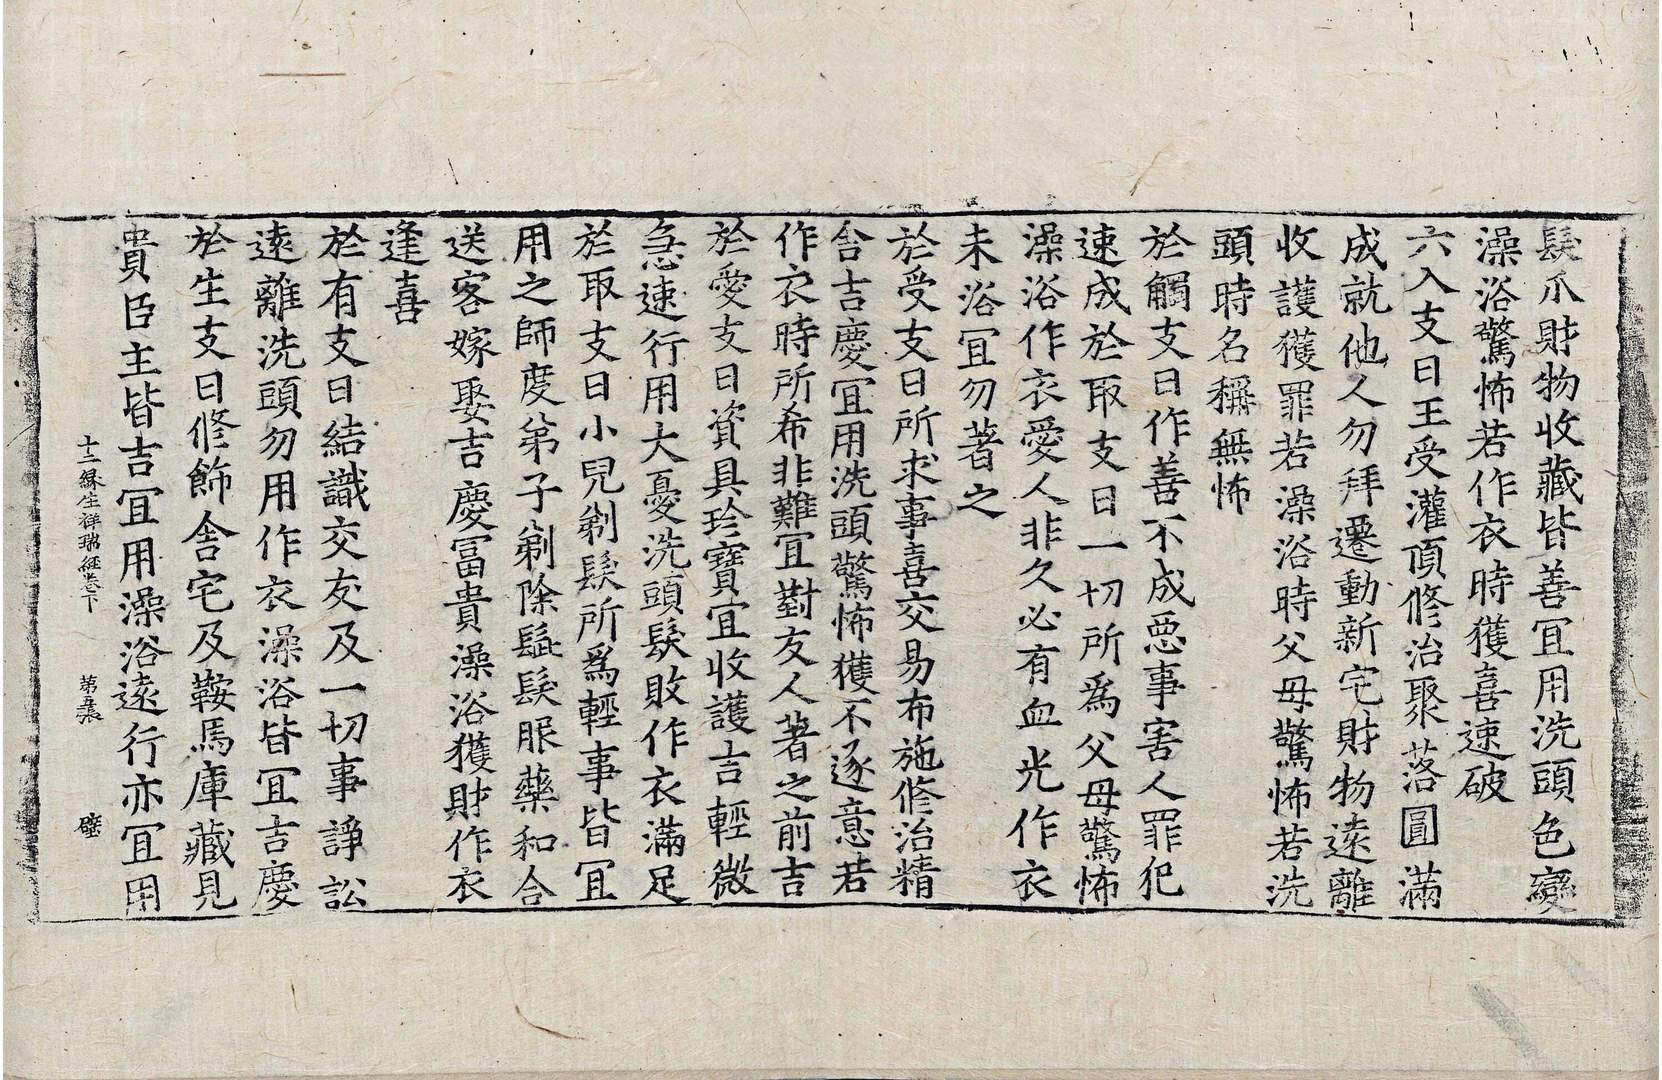 鬚爪財物收藏皆善冝用洗頭色變
澡浴驚怖若作衣時獲喜速破
六入支日王受灌頂修治聚落圓滿
成就他人勿拜遷動新宅財物遠離
收護獲罪若澡浴時父母驚怖若洗
頭時名稱無怖
於觸支日作善不成惡事害人罪犯
速成於取支日一切所爲父母驚怖
澡浴作衣愛人非久必有血光作衣
未浴冝勿著之
於受支日所求事喜交易布施修治精
舍吉慶冝用洗頭驚怖獲不逐意若
作衣時所希非難冝對友人著之前吉
於愛支日資具珍寶冝收護言輕微
急速行用大憂洗頭髮敗作衣滿足
於取支日小兒剃髮所爲輕事皆冝
用之師度弟子剃除髭髮服藥和合
送客嫁娶吉慶冨貴澡浴獲財作衣
逢喜
於有支日結識交友及一切事諍訟
遠離洗頭勿用作衣澡浴皆冝吉慶
於生支日修飾舍宅及鞍馬庫藏見
貴臣主皆吉冝用澡浴遠行亦冝用
十二縁生祥瑞經卷下 第五張 璧